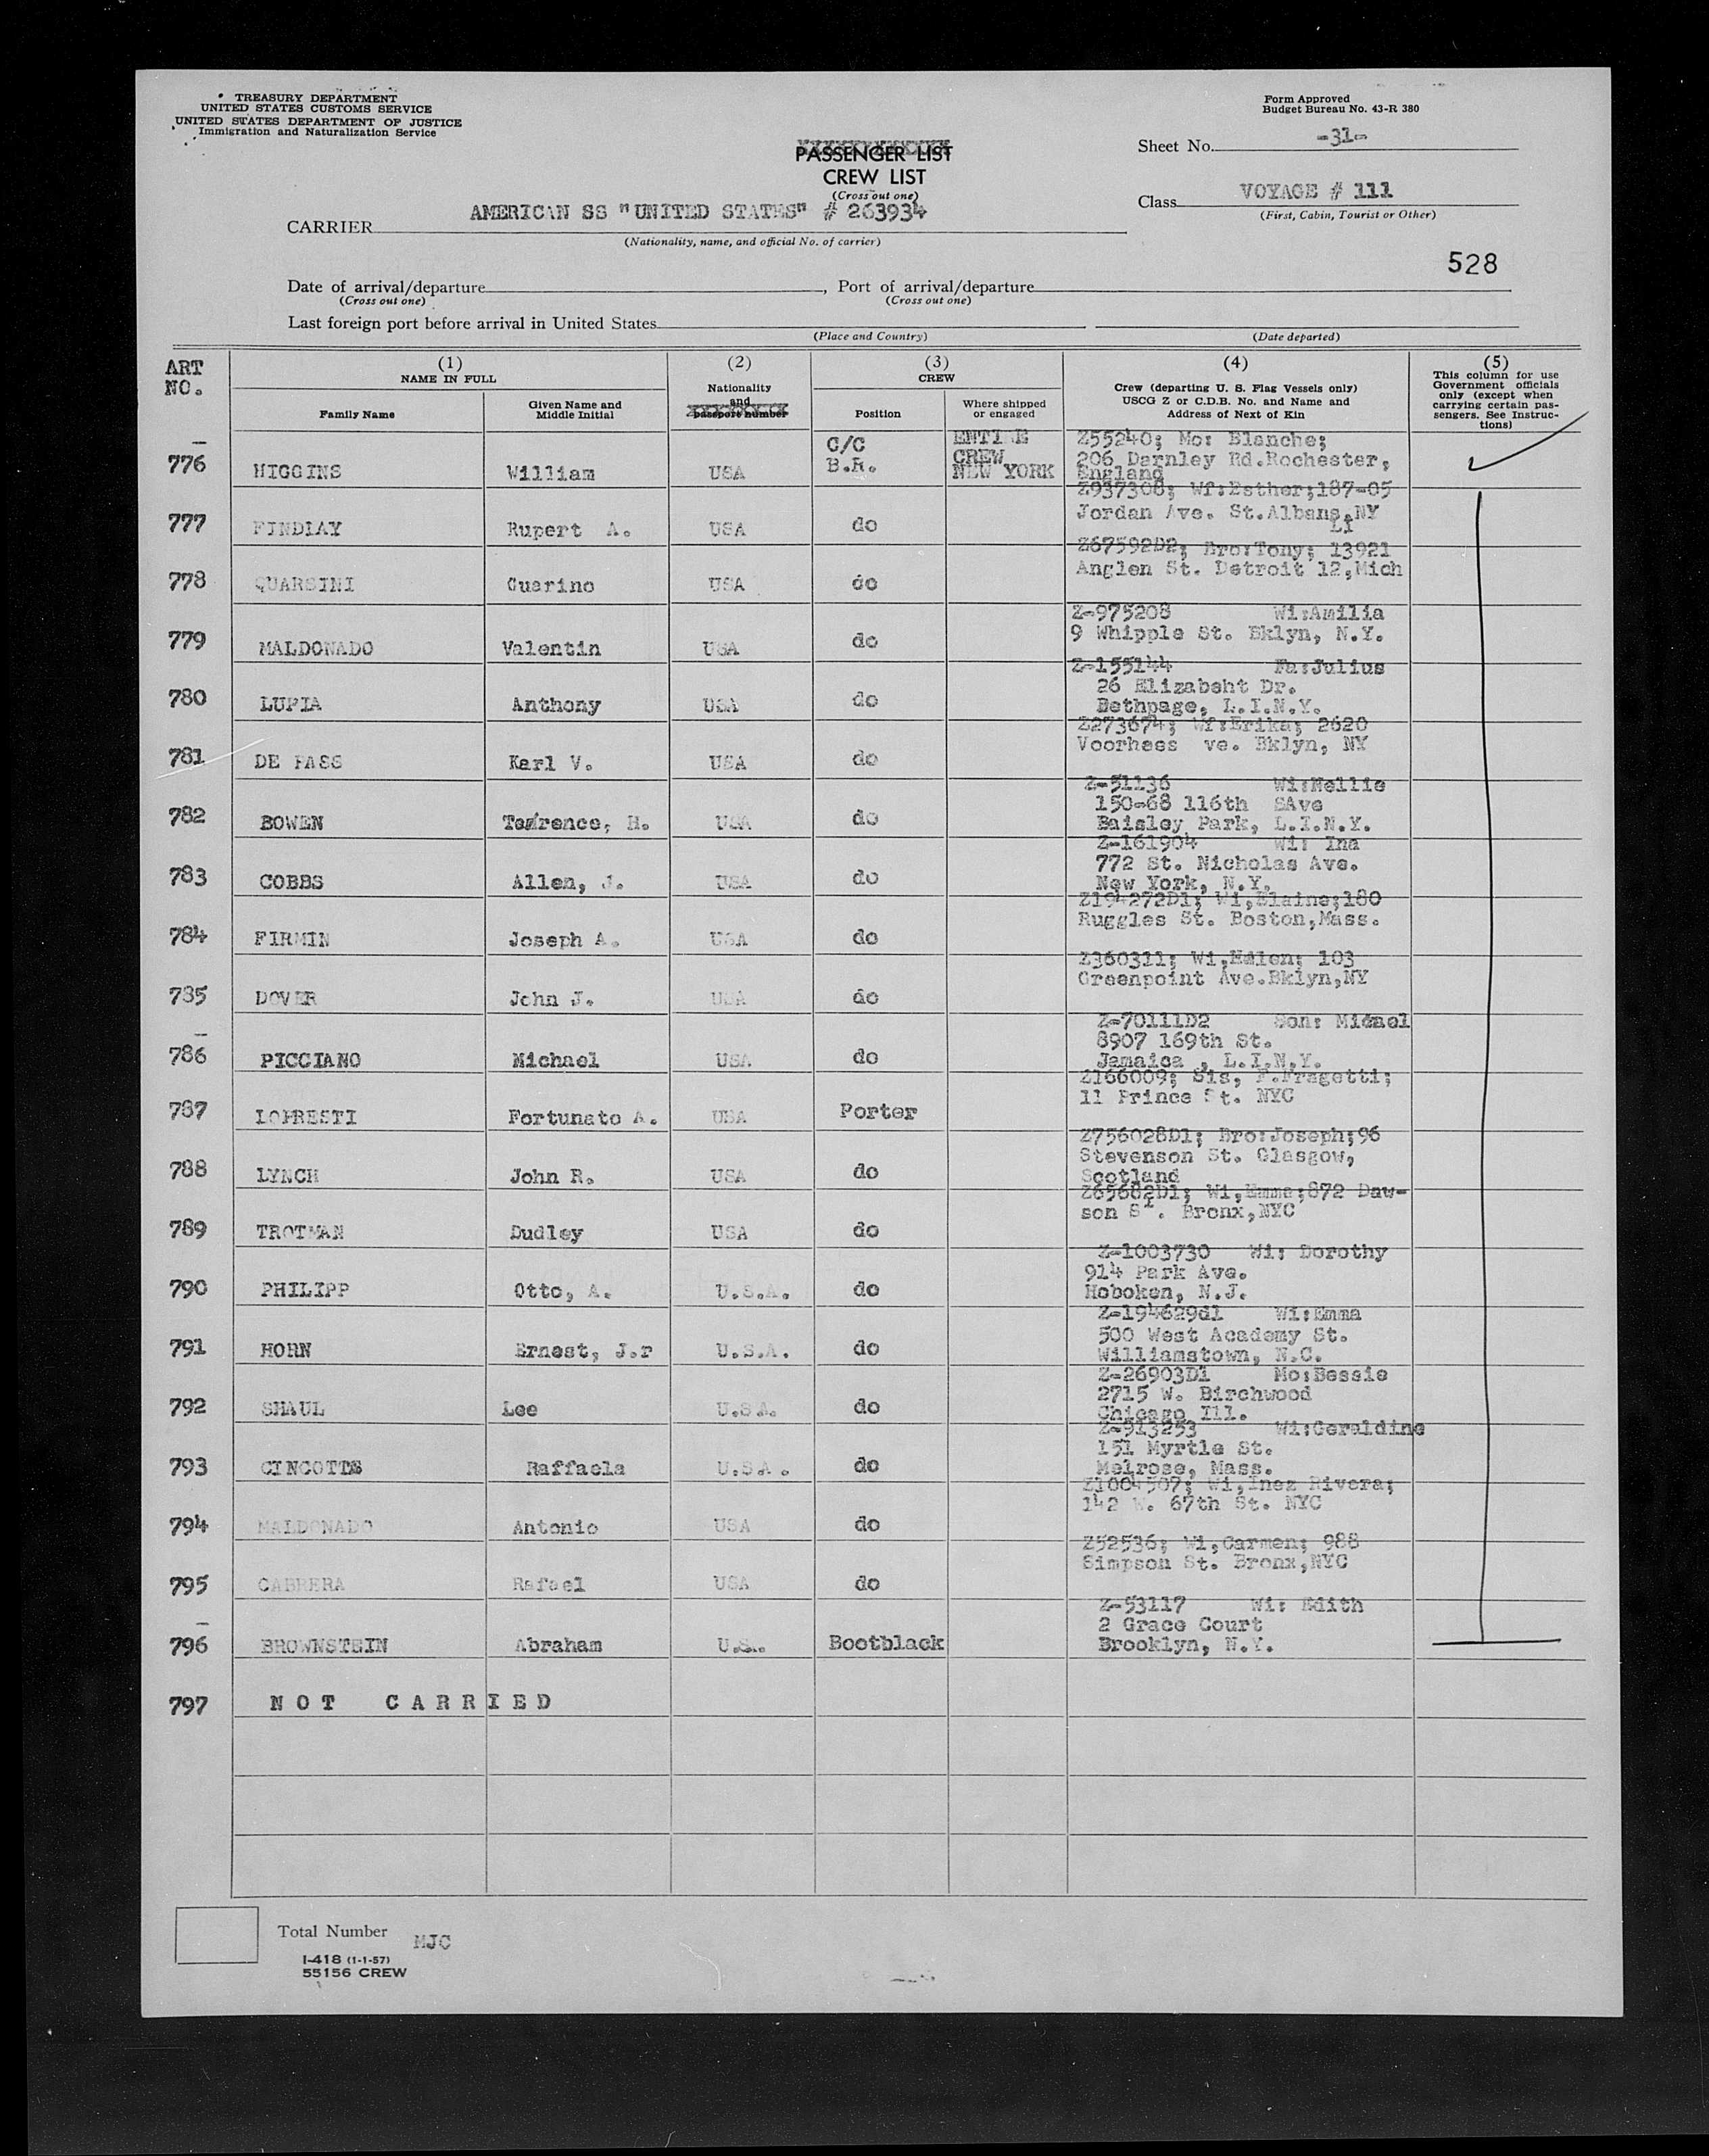 TREASURY DEPARTMENT
UNITED STATES CUSTOMS SERVICE
UNITED STATES DEPARTMENT OF JUSTICE
Immigration and Naturalization Service
Form Approved
Budget Bureau No. 43-R 380
Sheet No. -31-
PASSENGER LIST
CREW LIST
(Cross out one)
Class VOYAGE # 111
(First, Cabin, Tourist or Other)
CARRIER AMERICAN SS "UNITED STATES" # 263934
(Nationality, name, and official No. of carrier)
528
Date of arrival/departure , Port of arrival/departure
(Cross out one) (Cross out one)
Last foreign port before arrival in United States
(Place and Country) (Date departed)
ART NO.
(1) NAME IN FULL
Family Name
Given Name and Middle Initial
(2)
Nationality and passport number
(3) CREW
Position
Where shipped or engaged
(4)
Crew (departing U. S. Flag Vessels only)
USCG Z or C.D.B. No. and Name and
Address of Next of Kin
(5)
This column for use
Government officials
only (except when
carrying certain pas-
sengers. See Instruc-
tions)
776 HIGGINS William USA C/C B.R. ENTI E CREW NEW YORK Z55240; Mo: Blanche;
206 Darnley Rd.Rochester,
England
777 FINDLAY Rupert A. USA do Z937308; Wf:Esther;187-05
Jordan Ave. St.Albans,NY
LI
778 QUARSINI Guarino USA do Z67592D2; Bro:Tony; 13921
Anglen St. Detroit 12,Mich
779 MALDONADO Valentin USA do Z-975208 Wi:Amilia
9 Whipple St. Bklyn, N.Y.
780 LUPIA Anthony USA do Z-155144 Fa:Julius
26 Elizabeht Dr.
Bethpage, L.I.N.Y.
781 DE PASS Karl V. USA do Z273674; Wf:Erika; 2620
Voorhees ve. Bklyn, NY
782 BOWEN Terrence, H. USA do Z-51136 Wi:Nellie
150-68 116th SAve
Baisley Park, L.I.N.Y.
783 COBBS Allen, J. USA do Z-161904 Wi: Ina
772 St. Nicholas Ave.
New York, N.Y.
784 FIRMIN Joseph A. USA do Z194272D1; Wi,Elaine;180
Ruggles St. Boston,Mass.
785 DOVER John J. USA do Z360311; Wi,Helen; 103
Greenpoint Ave.Bklyn,NY
786 PICCIANO Michael USA do Z-70111D2 Son: Michael
8907 169th St.
Jamaica , L.I.N.Y.
787 LOPRESTI Fortunato A. USA Porter Z166009; Sis, F.Fragetti;
11 Prince St. NYC
788 LYNCH John R. USA do Z756028D1; Bro:Joseph;96
Stevenson St. Glasgow,
Scotland
789 TROTMAN Dudley USA do Z65682D1; Wi,Emma;872 Daw-
son St. Bronx,NYC
790 PHILIPP Otto, A. U.S.A. do Z-1003730 Wi: Dorothy
914 Park Ave.
Hoboken, N.J.
791 HORN Ernest, J.r U.S.A. do Z-194629d1 Wi:Emma
500 West Academy St.
Williamstown, N.C.
792 SHAUL Lee U.S.A. do Z-26903D1 Mo:Bessie
2715 W. Birchwood
Chicago Ill.
793 Raffaela U.S.A. do Z-913253 Wi:Geraldine
151 Myrtle St.
Melrose, Mass.
794 MALDONADO Antonio USA do Z1004507; Wi,Inez Rivera;
142 W. 67th St. NYC
795 CABRERA Rafael USA do Z52536; Wi,Carmen; 988
Simpson St. Bronx,NYC
796 BROWNSTEIN Abraham U.S. Bootblack Z-53117 Wi: Edith
2 Grace Court
Brooklyn, N.Y.
797 NOT CARRIED
Total Number MJC
I-418 (1-1-57)
55156 CREW